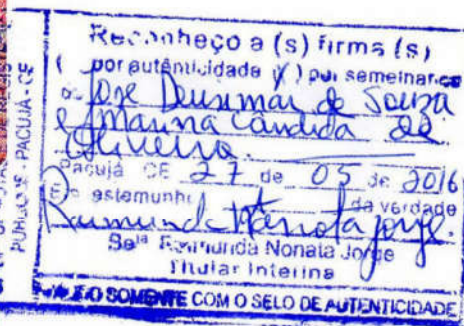 Reconheço a (s) firma (s)
( por autenticidade (X) por semelhança
de José Deusimar de Souza
e Marina Cândida de
Oliveira.
Pacujá CE 27 de 05 de 2016
Em testemunho da verdade
Raimunda Nonata Jorge.
Raimunda Nonata Jorge
Titular Interina
COM O SELO DE AUTENTICIDADE
PACUJÁ - CE